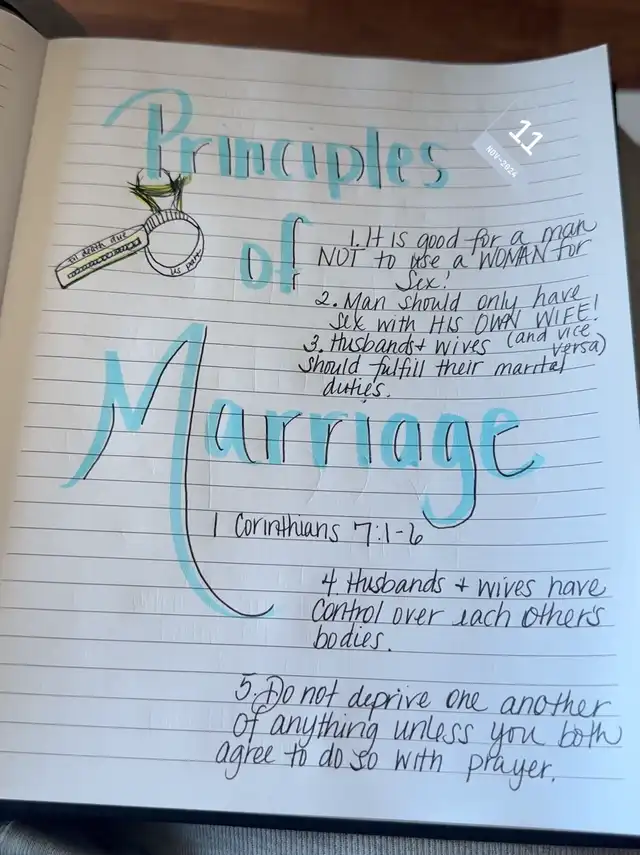 Principles
11
NOV-2024
of
til death due
us part
1. It is good for a man
NOT to use a WOMAN for
Sex!
2. Man should only have
sex with HIS OWN WIFE!
3. Husbands + wives (and vice
versa)
should fulfill their marital
duties.
Marriage
1 Corinthians 7:1-6
4. Husbands + wives have
control over each other's
bodies.
5. Do not deprive one another
of anything unless you both
agree to do so with prayer.